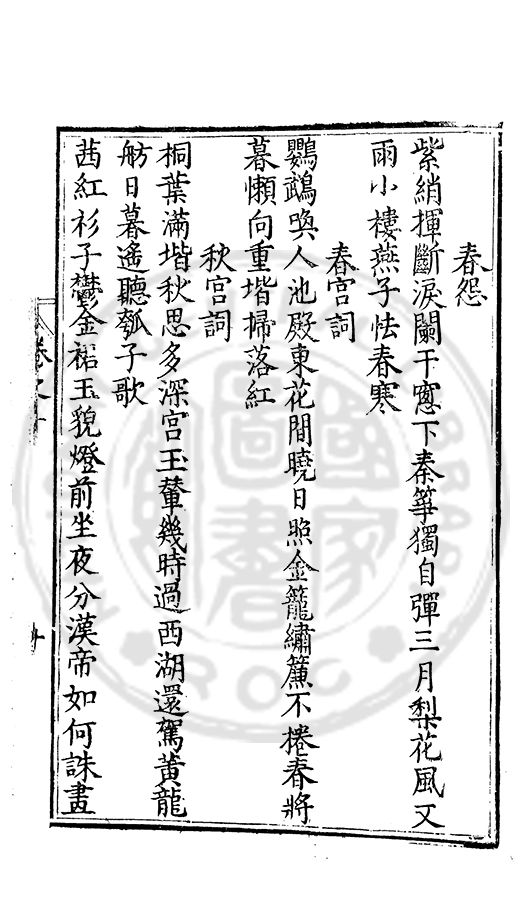 春怨
紫綃揮斷淚闌干窻下秦箏獨自彈三月梨花風又
雨小樓燕子怯春寒
春宫詞
鸚鵡喚人池殿東花間曉日照金籠繡簾不捲春將
暮懶向重堦掃落紅
秋宫詞
桐葉滿堦秋思多深宫玉輦幾時過西湖還駕黃龍
舫日暮遙聽瓠子歌
茜紅衫子鬱金裙玉貌燈前坐夜分漢帝如何誅畫